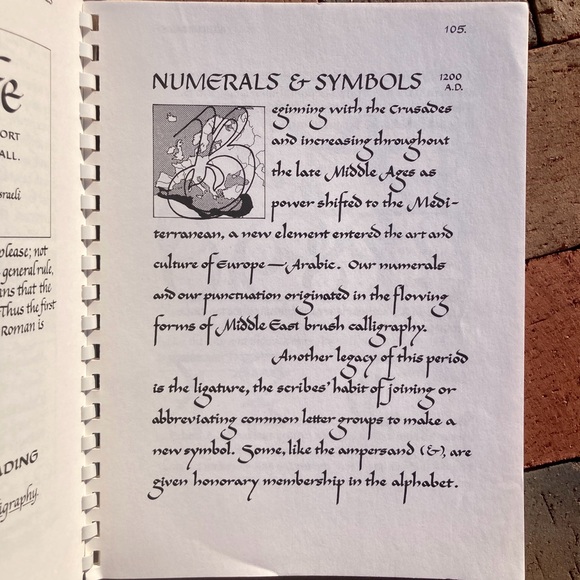 te
ORT
ALL.
sraeli
please; not
general rule,
ans that the
Thus the first
Roman is
ADING
igraphy.
105.
NUMERALS & SYMBOLS 1200 A.D.
Beginning with the Crusades
and increasing throughout
the late Middle Ages as
power shifted to the Medi-
terranean, a new element entered the art and
culture of Europe — Arabic. Our numerals
and our punctuation originated in the flowing
forms of Middle East brush calligraphy.
Another legacy of this period
is the ligature, the scribes' habit of joining or
abbreviating common letter groups to make a
new symbol. Some, like the ampersand (&), are
given honorary membership in the alphabet.